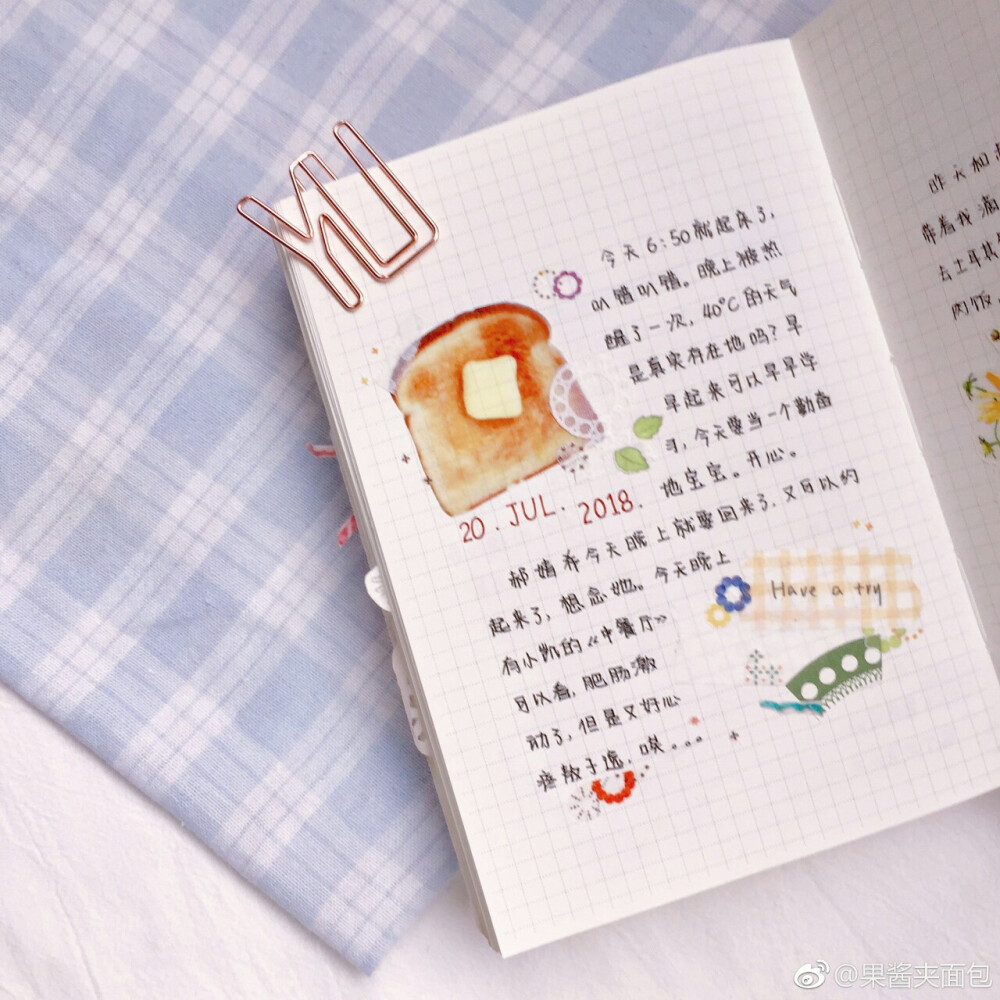 今天6:50就起床了,
叭嗒叭嗒。晚上被热
醒了一次,40℃的天气
是真实存在地吗?早
早起来可以早早学
习,今天要当一个勤奋
地宝宝。开心。
20.JUL.2018.
今天晚上就要回来了.又可以约
起来了,想念她。今天晚上
有小凯的《中餐厅》
可以看,肥肠激
动了,但是又好心
疼敖子逸.唉。。。
Have a try
昨天和
带着我滴
去士耳其
肉饭
@果酱夹面包